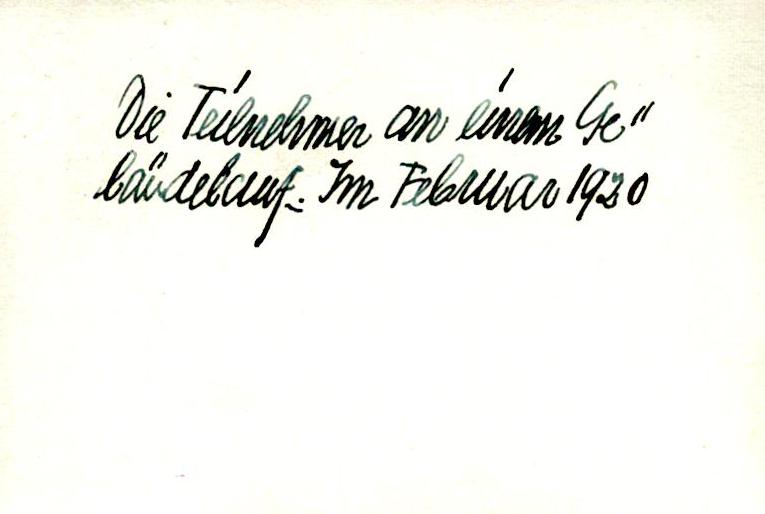 Die Teilnehmer an einem Ge"
bäudelauf. Im Februar 1920